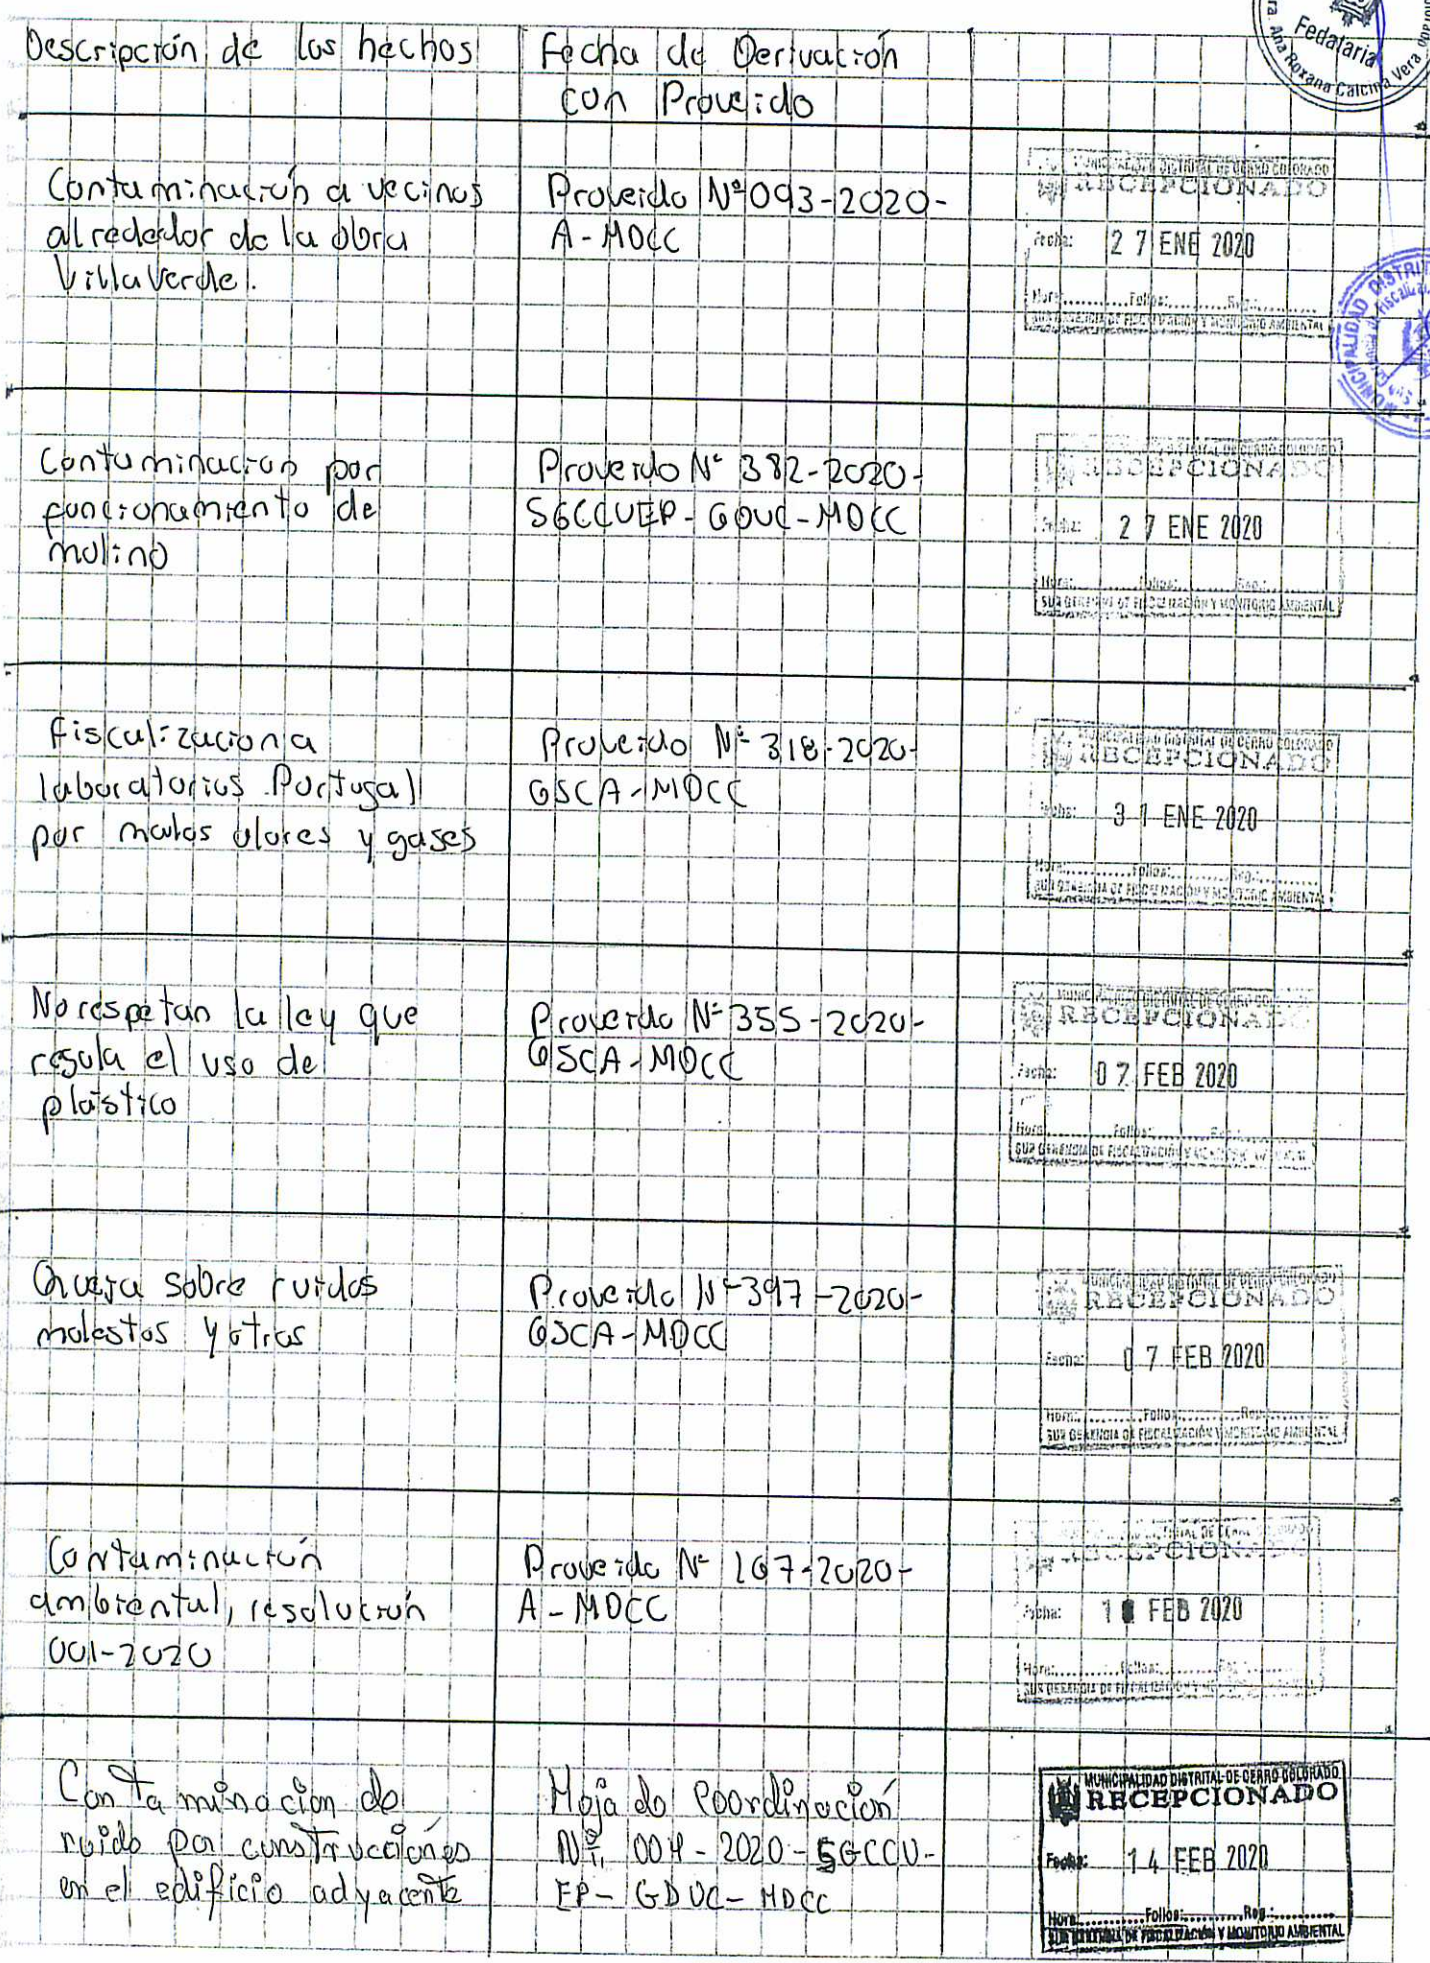 Descripción de los hechos
Fecha de Derivación
con Proveido
Fedataria
Ana Roxana Calcina Vera
Contaminación a vecinos
alrededor de la obra
Villa Verde.
Proveido Nº 093-2020-
A-MDCC
MUNICIPALIDAD DISTRITAL DE CERRO COLORADO
RECEPCIONADO
Fecha: 27 ENE 2020
Hora:...........Folios:...........Reg.:...........
SUB GERENCIA DE FISCALIZACIÓN Y MONITORIO AMBIENTAL
Contaminacion por
funcionamiento de
molino
Proveido Nº 382-2020-
SGCCUEP-GDUC-MDCC
DISTRITAL DE CERRO COLORADO
RECEPCIONADO
Fecha: 27 ENE 2020
Hora:...........Folios:...........Reg.:...........
SUB GERENCIA DE FISCALIZACIÓN Y MONITORIO AMBIENTAL
fiscalizacion a
laboratorios Portugal
por malos olores y gases
Proveido Nº 318-2020-
GSCA-MDCC
MUNICIPALIDAD DISTRITAL DE CERRO COLORADO
RECEPCIONADO
Fecha: 31 ENE 2020
Hora:...........Folios:...........Reg.:...........
SUB GERENCIA DE FISCALIZACIÓN Y MONITORIO AMBIENTAL
No respetan la ley que
regula el uso de
plástico
Proveido Nº 355-2020-
GSCA-MDCC
MUNICIPALIDAD DISTRITAL DE CERRO
RECEPCIONADO
Fecha: 07 FEB 2020
Hora:...........Folios:...........
SUB GERENCIA DE FISCALIZACIÓN Y
Queja sobre ruidos
molestos y otros
Proveido Nº 397-2020-
GSCA-MDCC
MUNICIPALIDAD DISTRITAL DE CERRO COLORADO
RECEPCIONADO
Fecha: 07 FEB 2020
Hora:...........Folios:...........Reg.:...........
SUB GERENCIA DE FISCALIZACIÓN Y MONITORIO AMBIENTAL
Contaminación
ambiental, resolución
001-2020
Proveido Nº 167-2020-
A-MDCC
RECEPCIONADO
Fecha: FEB 2020
Hora:...........Folios:...........
SUB GERENCIA DE FISCALIZACIÓN Y
Contaminacion de
ruido por construcciones
en el edificio adyacente
Hoja de Coordinación
Nº 004-2020-SGCCU-
EP-GDUC-MDCC
MUNICIPALIDAD DISTRITAL DE CERRO COLORADO
RECEPCIONADO
Fecha: 14 FEB 2020
Hora:...........Folios:...........Reg.:...........
SUB GERENCIA DE FISCALIZACIÓN Y MONITORIO AMBIENTAL